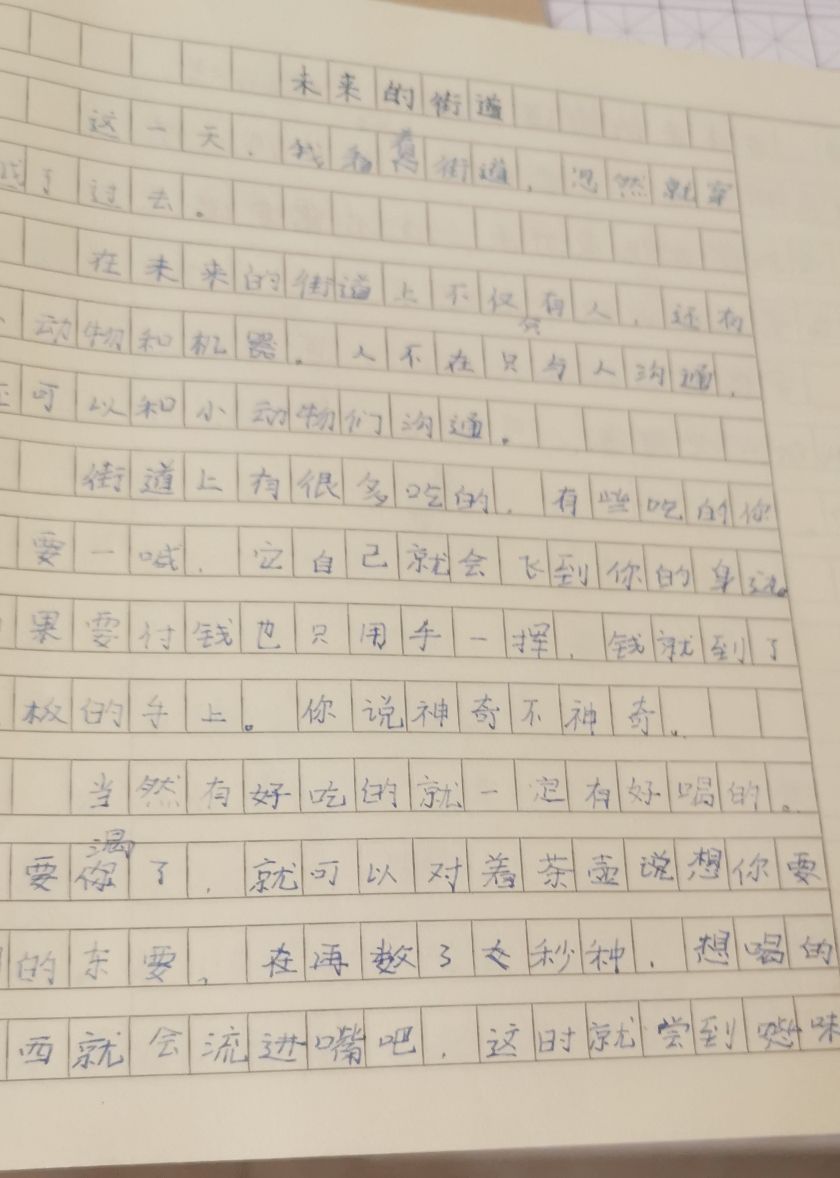 未来的街道
这一天,我看着街道,忽然就穿
了过去。
在未来的街道上不仅有人,还有
动物和机器。人不在只与人沟通,
可以和小动物们沟通。
街道上有很多吃的,有些吃的你
要一喊,它自己就会飞到你的身边。
果要付钱也只用手一挥,钱就到了
板的手上。你说神奇不神奇。
当然有好吃的就一定有好喝的。
要你渴了,就可以对着茶壶说想你要
的东要,在再数3秒种,想喝的
西就会流进嘴吧,这时就尝到味